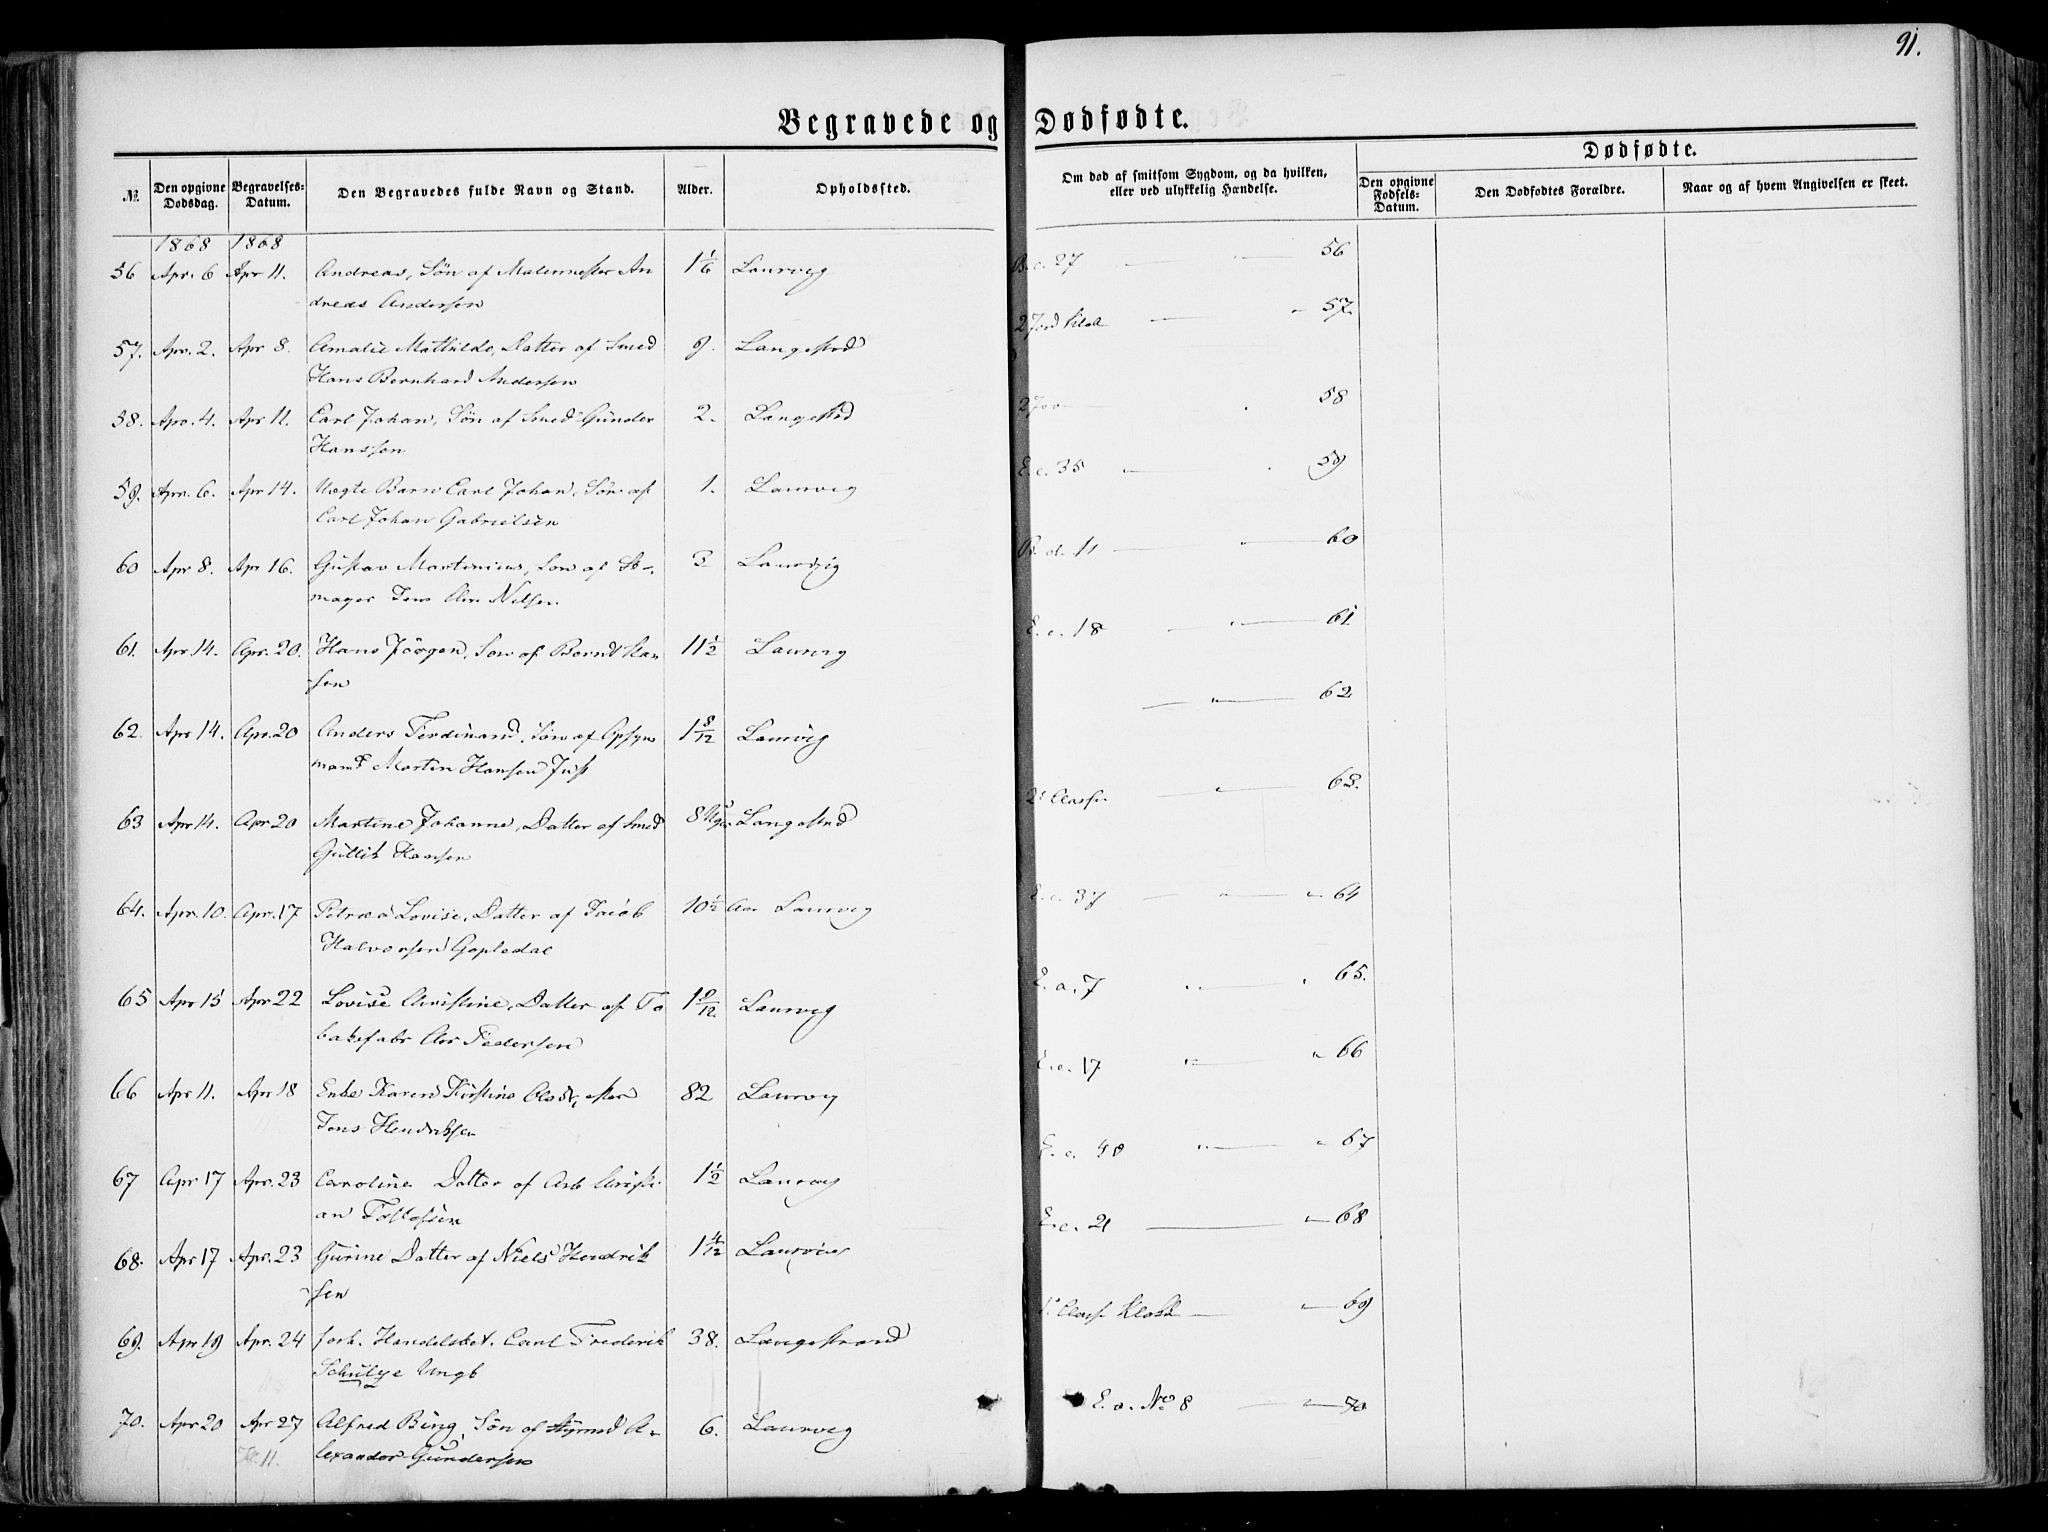 91.
Begravede og Dødfødte.
№
Den opgivne Dødsdag.
Begravelses-Datum.
Den Begravedes fulde Navn og Stand.
Alder.
Opholdssted.
Om død af smitsom Sygdom, og da hvilken, eller ved ulykkelig Hændelse.
Dødfødte.
Den opgivne Fødsels-Datum.
Den Dødfødtes Forældre.
Naar og af hvem Angivelsen er skeet.
1868 1868
56 Apr. 6 Apr 11. Andreas, Søn af Malermester An 1 1/6 Laurvig 27 56
dreas Andersen
57. Apr. 2. Apr 8. Amalie Mathilde, Datter af Smed 9. Langestrd 57.
Hans Bernhard Andersen
58. Apr. 4. Apr 11. Carl Johan, Søn af Smed Gunder 2. Langestrd 58
Hanssen
59. Apr. 6. Apr 14. Uægte Barn Carl Johan, Søn af 1. Laurvig E. c. 35 59
Carl Johan Gabrielsen
60 Apr 8. Apr 16. Gustav Martinius, Søn af 3 Laurvig 11 60
mager Jens Chr Nilsen.
61. Apr. 14. Apr. 20. Hans Jörgen, Søn af Berndt Han 11 1/2 Laurvig E. c. 18 61
sen
62. Apr 14. Apr. 20 Anders Ferdinand, Søn af Opsyns 1 8/12 Laurvig 62
mand Martin Hansen
63 Apr 14. Apr 20 Martine Johanne, Datter af Smed 8 Uger Langestrd 2' Classe 63.
Gullik Hansen
64. Apr. 10 Apr. 17 Petrea Lovise, Datter af Jacob 10 1/2 Aar Laurvig E. c. 37 64
Halvorsen Gopledal
65 Apr 15 Apr 22 Lovise Christine, Datter af To 1 9/12 Laurvig E. a. 7 65.
baksfabr Chr Pedersen
66 Apr 11. Apr 18 Enke Karen Kirstine Olsdr, efter 82 Laurvig E. c. 17 66
Jens Hendriksen
67 Apr 17 Apr. 23 Caroline Datter af Arb Christi 1 1/2 Laurvig E. c. 48 67
an
68. Apr 17 Apr. 23 Gurine Datter af Niels Hendrik 1 4/12 Laurvig E. c. 21 68
sen
69. Apr 19 Apr. 24 forh. Handelsbet. Carl Frederik 38. Langestrand 1' Classe Klokk 69
Schulze Ungk
70. Apr 20 Apr 27 Alfred Bing, Søn af Styrmd A- 6. Laurvig E. a. No 8 70
11. lexander Gundersen